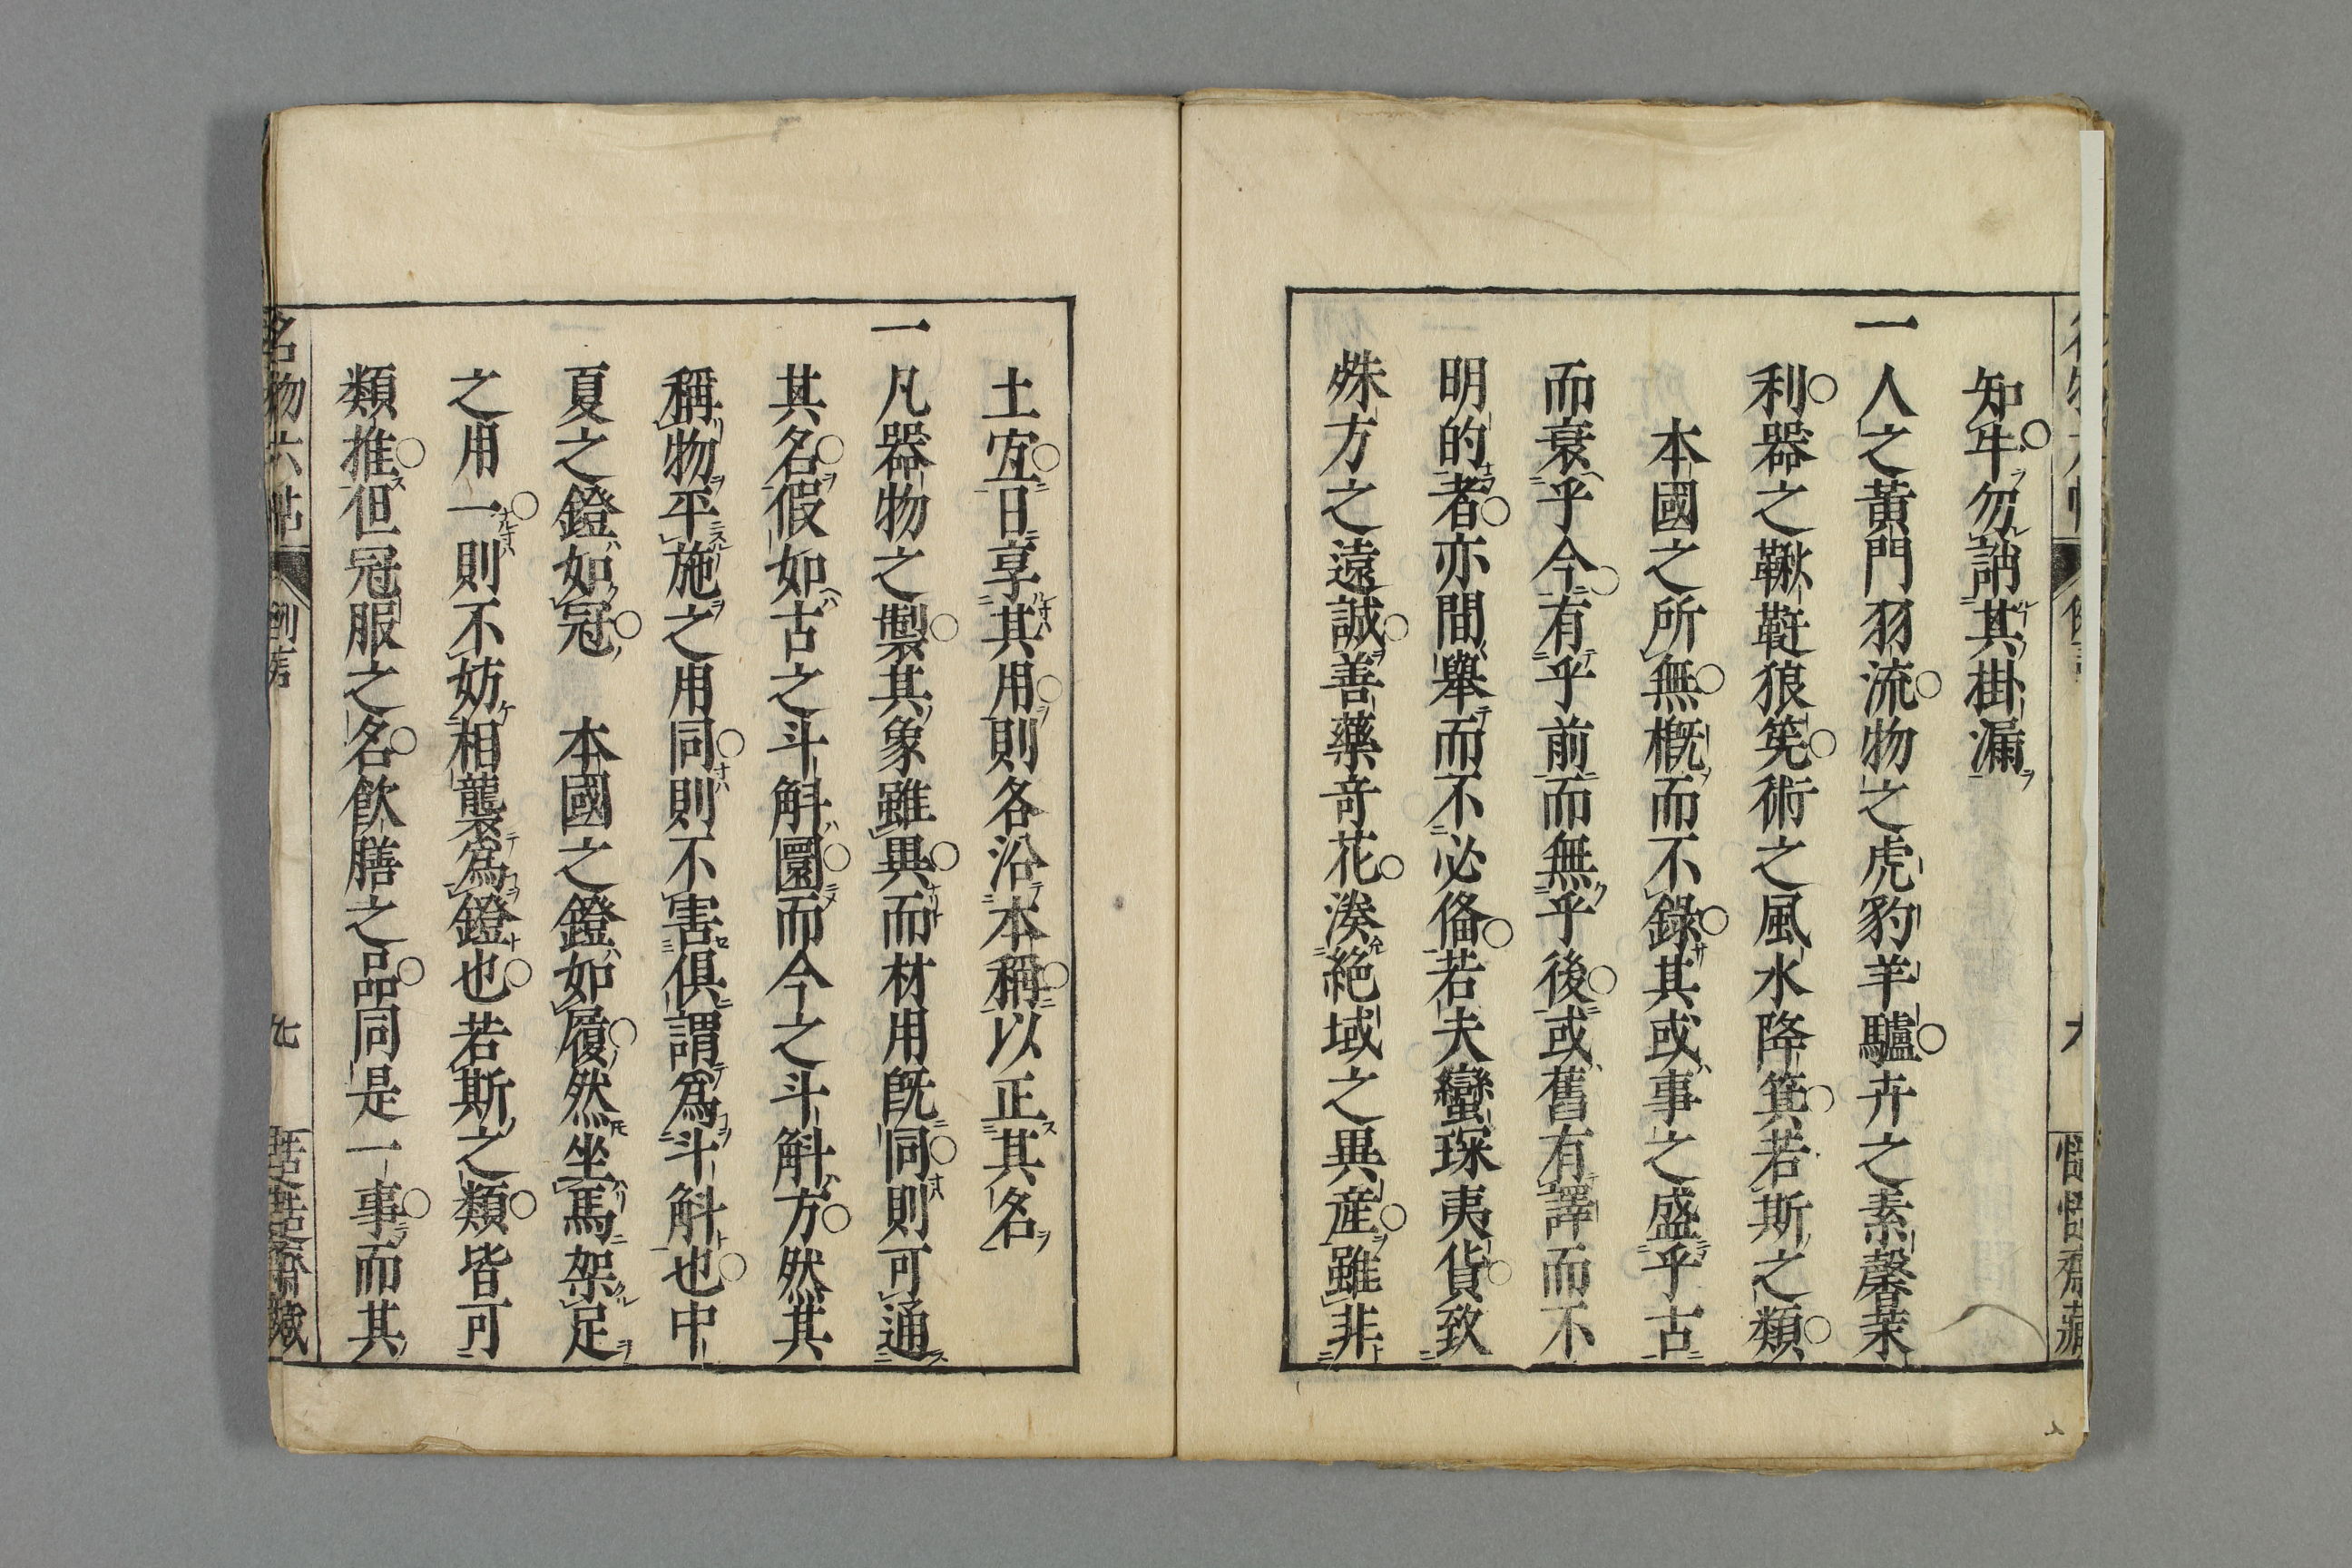 知牛勿誚其掛漏
一人之黄門羽流物之虎豹羊驢卉之素馨茉
利器之鞦韆狼筅術之風水降箕若斯之類
本國之所無槪而不錄其或事之盛乎古
而衰乎今有乎前而無乎後或舊有譯而不
明的者亦間舉而不必俻若夫蠻琛夷貨致
殊方之遠誠善藥奇花湊絶域之異産雖非
土宐日享其用則各沿本稱以正其名
一凡器物之製其象雖異而材用旣同則可通
其名假如古之斗斛圜而今之斗斛方然其
稱物平施之用同則不害俱謂爲斗斛也中
夏之鐙如冠 本國之鐙如履然坐馬架足
之用一則不妨相襲爲鐙也若斯之類皆可
類推但冠服之名飮膳之品同是一事而其
名物六帖 九